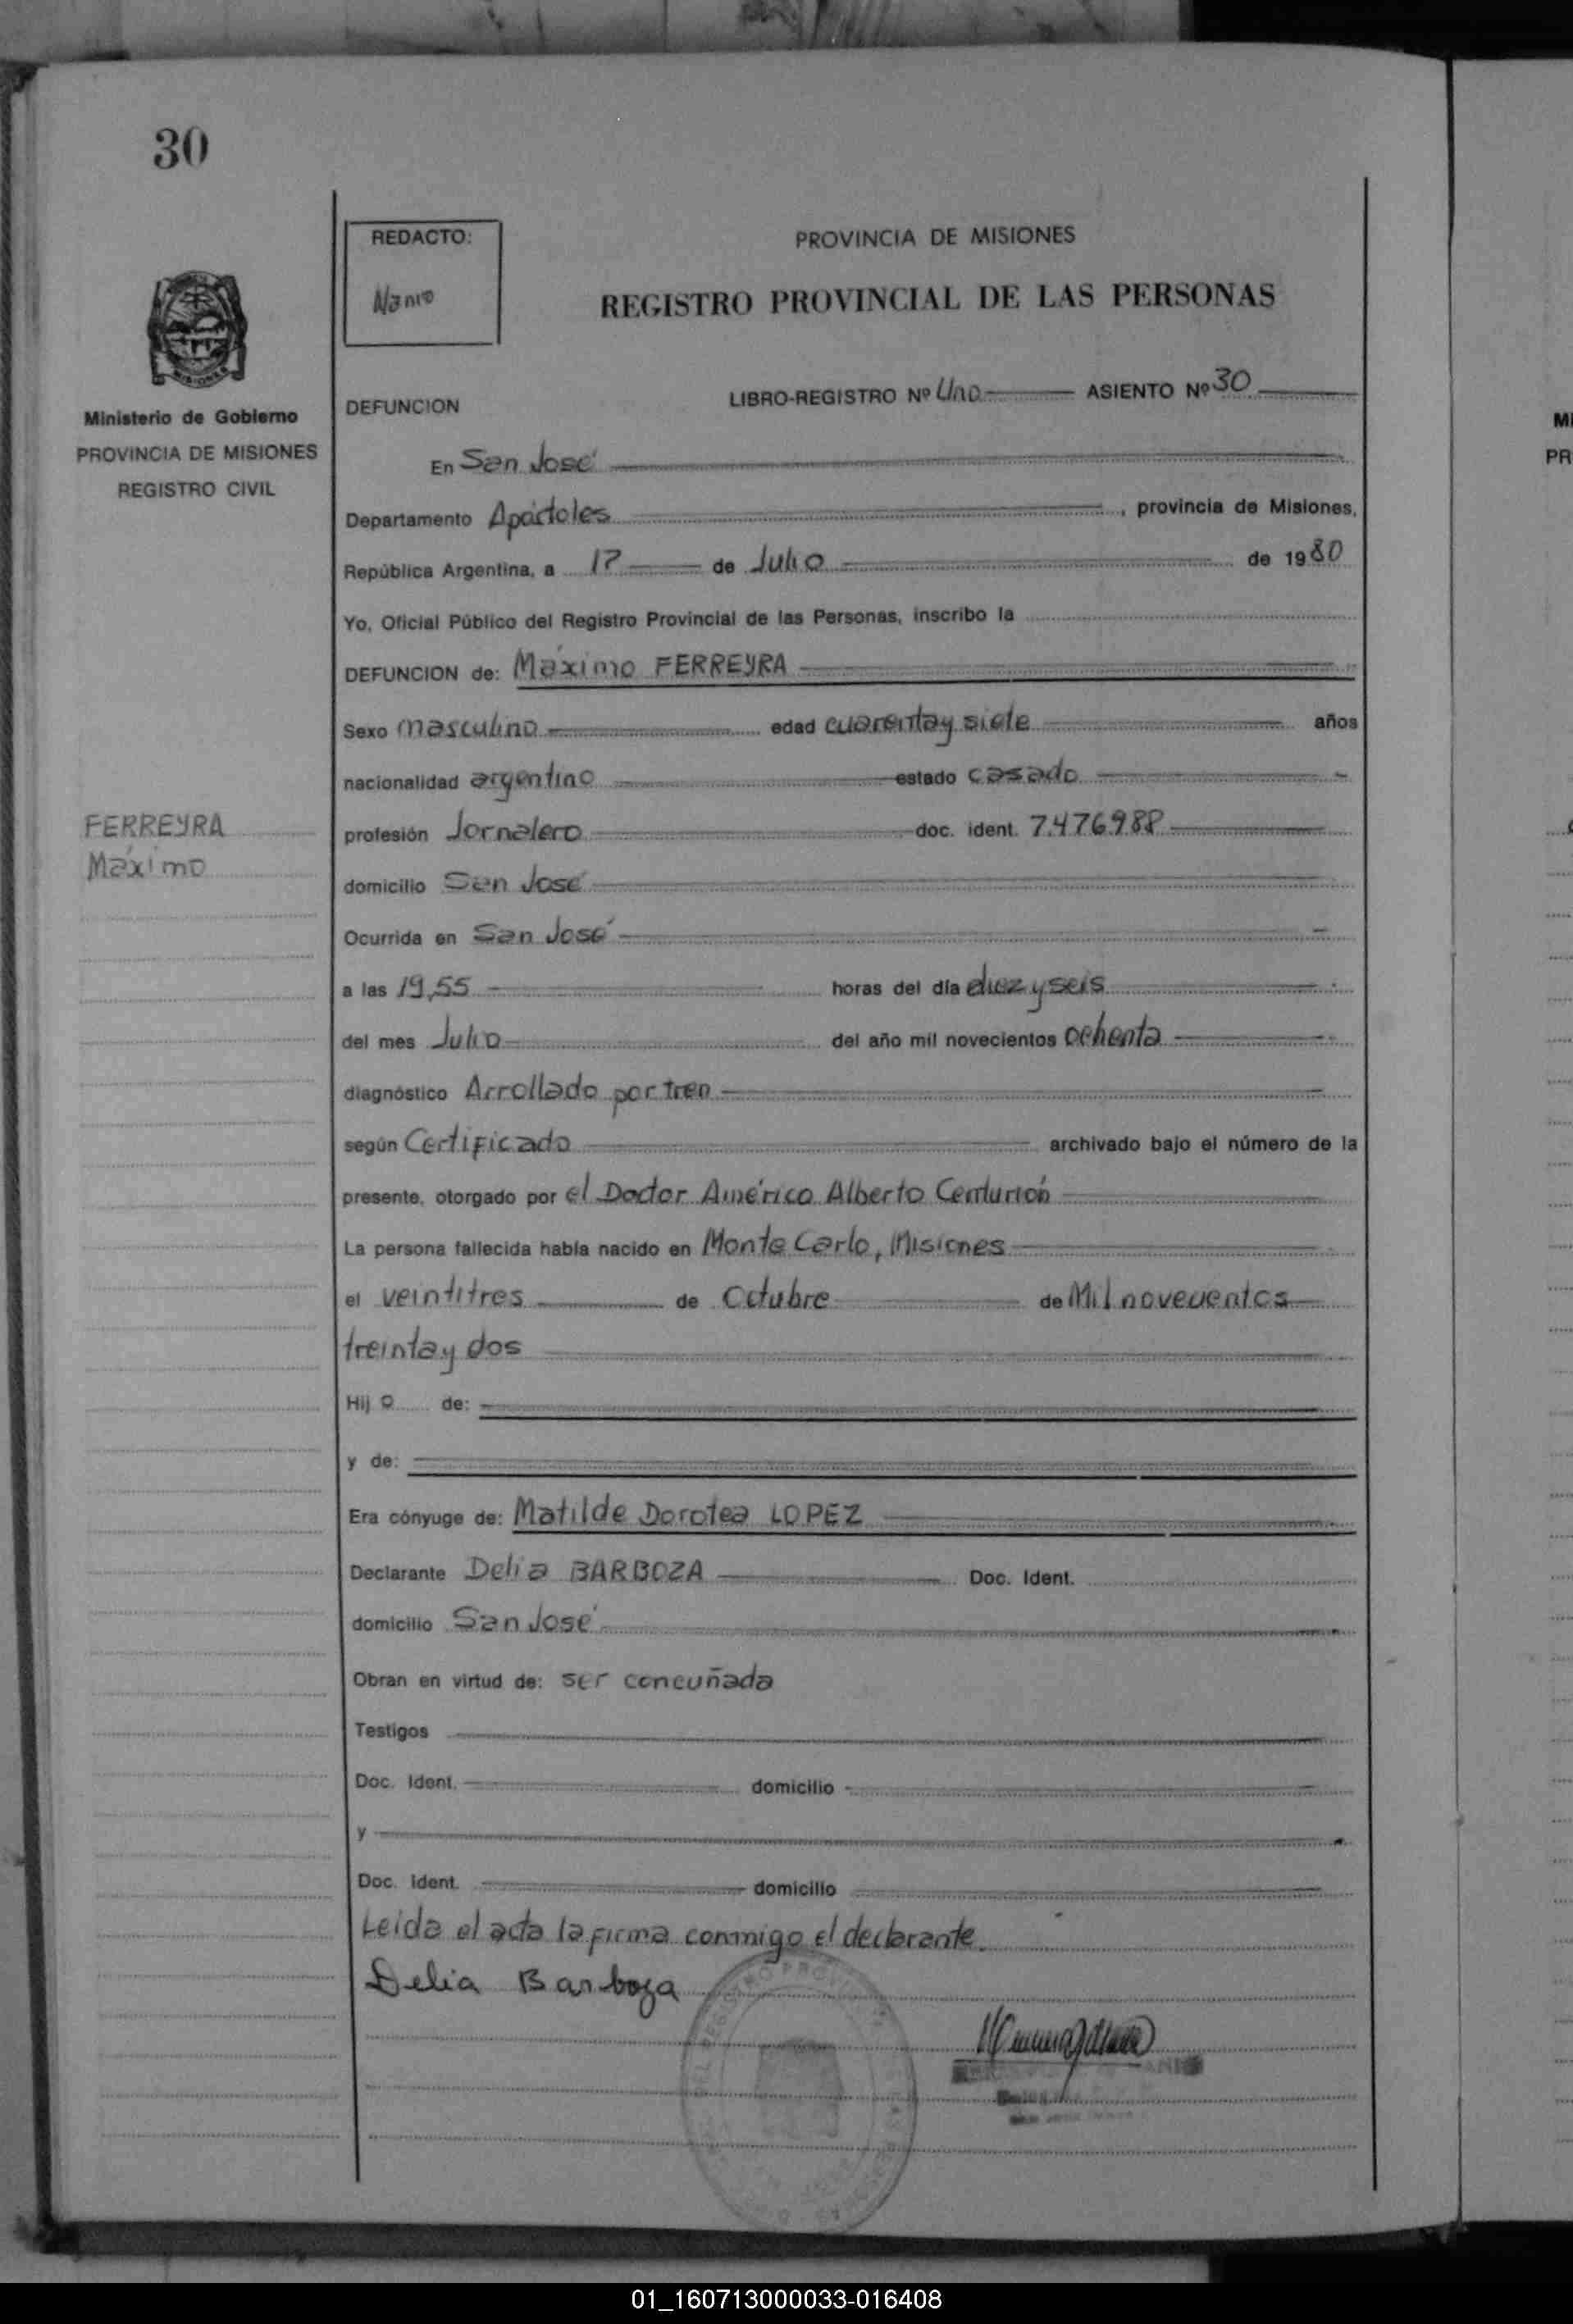 30
REDACTO:
Nanio
PROVINCIA DE MISIONES
REGISTRO PROVINCIAL DE LAS PERSONAS
MISIONES
Ministerio de Gobierno
PROVINCIA DE MISIONES
REGISTRO CIVIL
DEFUNCION
LIBRO-REGISTRO Nº Uno ASIENTO Nº 30
En San José
Departamento Apóstoles, provincia de Misiones,
República Argentina, a 17 de Julio de 1980
Yo, Oficial Público del Registro Provincial de las Personas, inscribo la
DEFUNCION de: Máximo FERREYRA
Sexo masculino edad cuarenta y siete años
nacionalidad argentino estado casado
FERREYRA
Máximo
profesión Jornalero doc. ident. 7.476.988
domicilio San José
Ocurrida en San José
a las 19,55 horas del día diez y seis
del mes Julio del año mil novecientos ochenta
diagnóstico Arrollado por tren
según Certificado archivado bajo el número de la
presente, otorgado por el Doctor Américo Alberto Centurión
La persona fallecida había nacido en Monte Carlo, Misiones
el veintitres de Octubre de Mil noveuentos
treinta y dos
Hijo de:
y de:
Era cónyuge de: Matilde Dorotea LOPEZ
Declarante Delia BARBOZA Doc. Ident.
domicilio San José
Obran en virtud de: ser concuñada
Testigos
Doc. Ident. domicilio
y
Doc. Ident. domicilio
Leida el acta la firma conmigo el declarante.
Delia Barboza
01_160713000033-016408